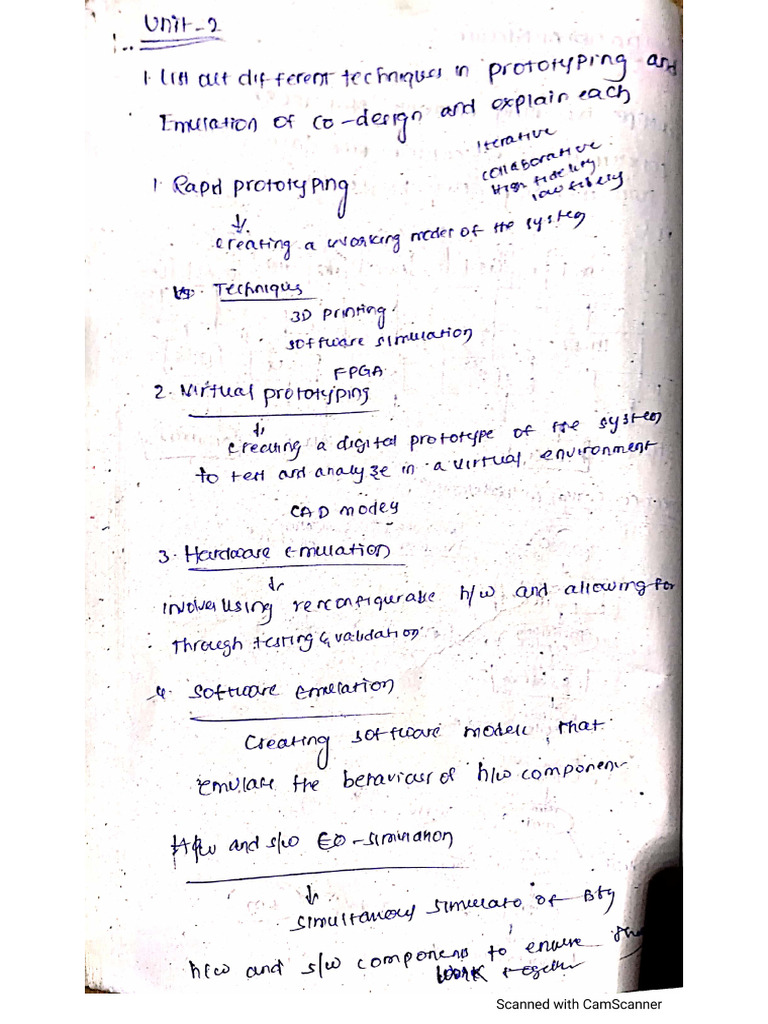 Unit-2
1. List out different techniques in prototyping and
Emulation of co-design and explain each
Iterative
collaborative
High fidelity
low fidelity
1. Rapid prototyping
creating a working model of the system
Techniques
3D Printing
software simulation
FPGA
2. Virtual prototyping
creating a digital prototype of the system
to test and analyze in a virtual environment
CAD models
3. Hardware emulation
involves using reconfigurable h/w and allowing for
through testing & validation
4. Software emulation
Creating software models that
emulate the behaviour of h/w component
H/w and s/w co-simulation
simultanous simulato of
h/w and s/w components to ensure
work together
Scanned with CamScanner